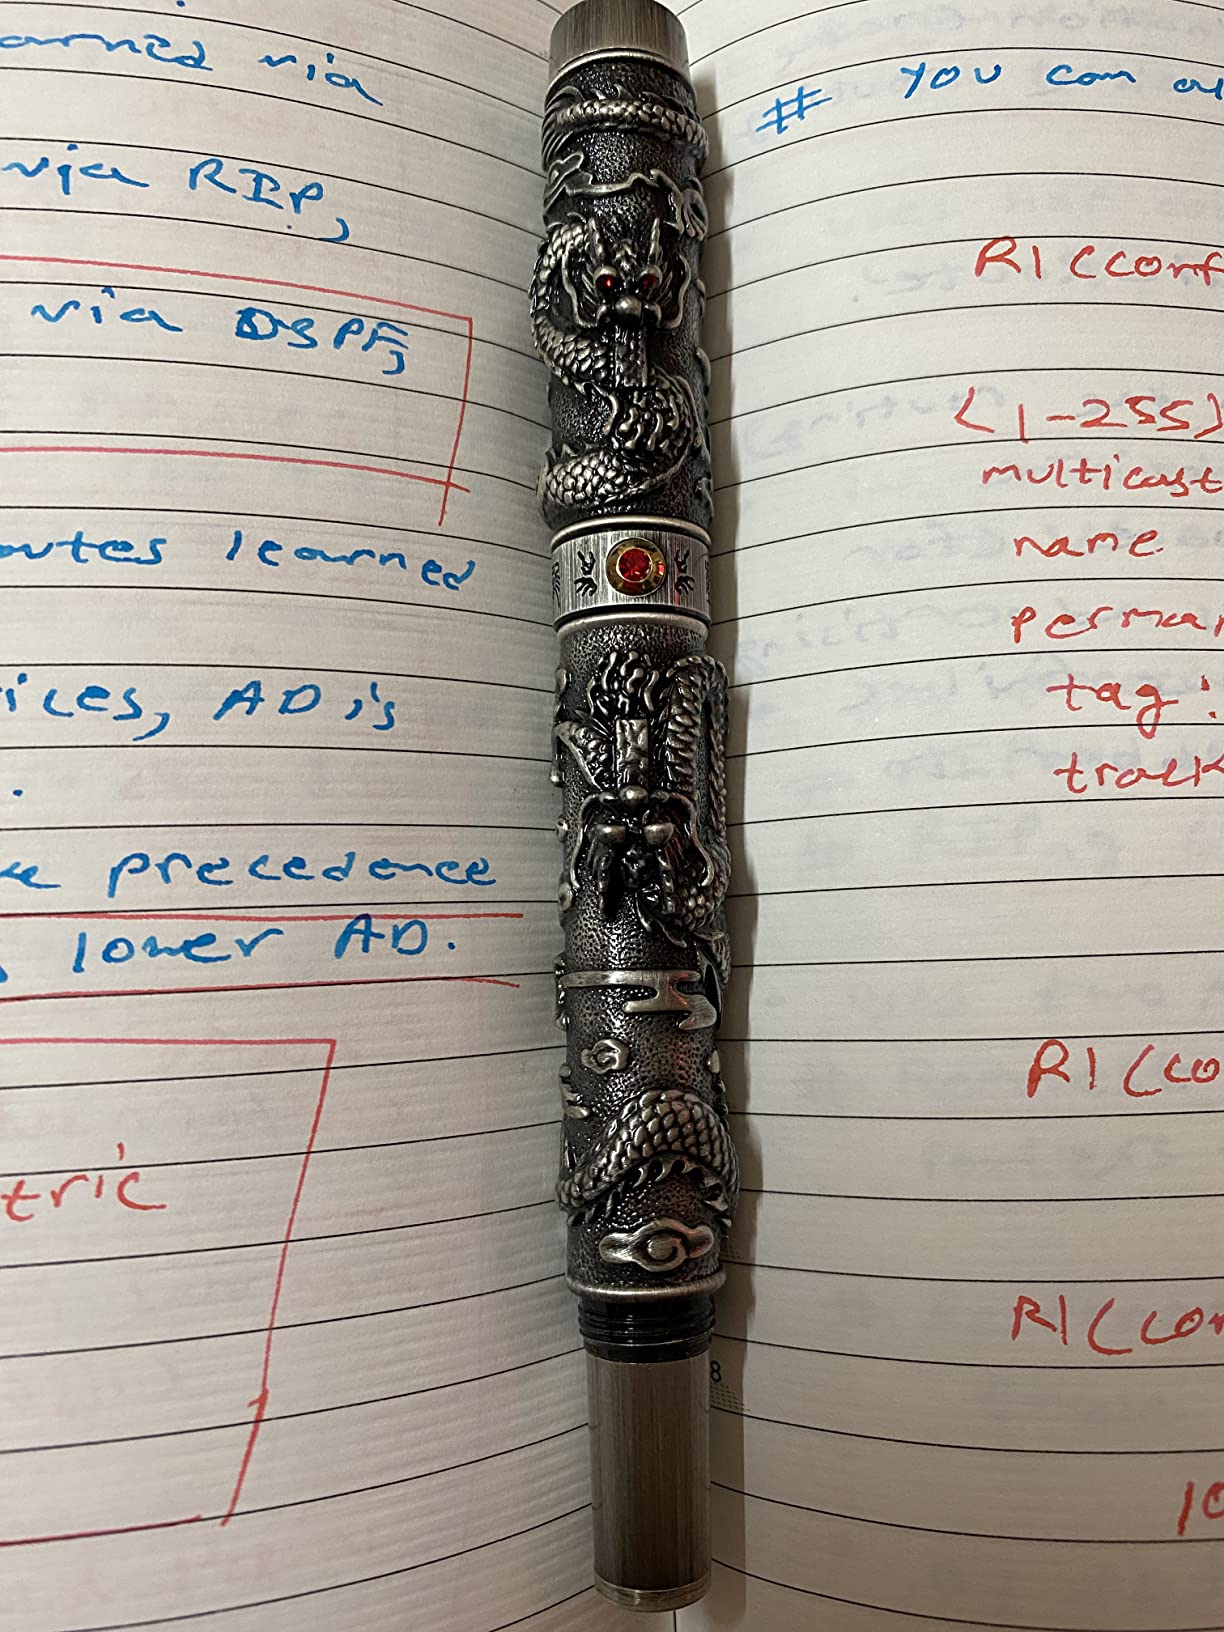 arned via
via RIP,
via OSPF,
outes learned
ices, AD is
precedence
lower AD.
tric
# you can al
R1(conf
(1-255)
multicast
name
perman
tag
track
R1(co
R1(con
8
10